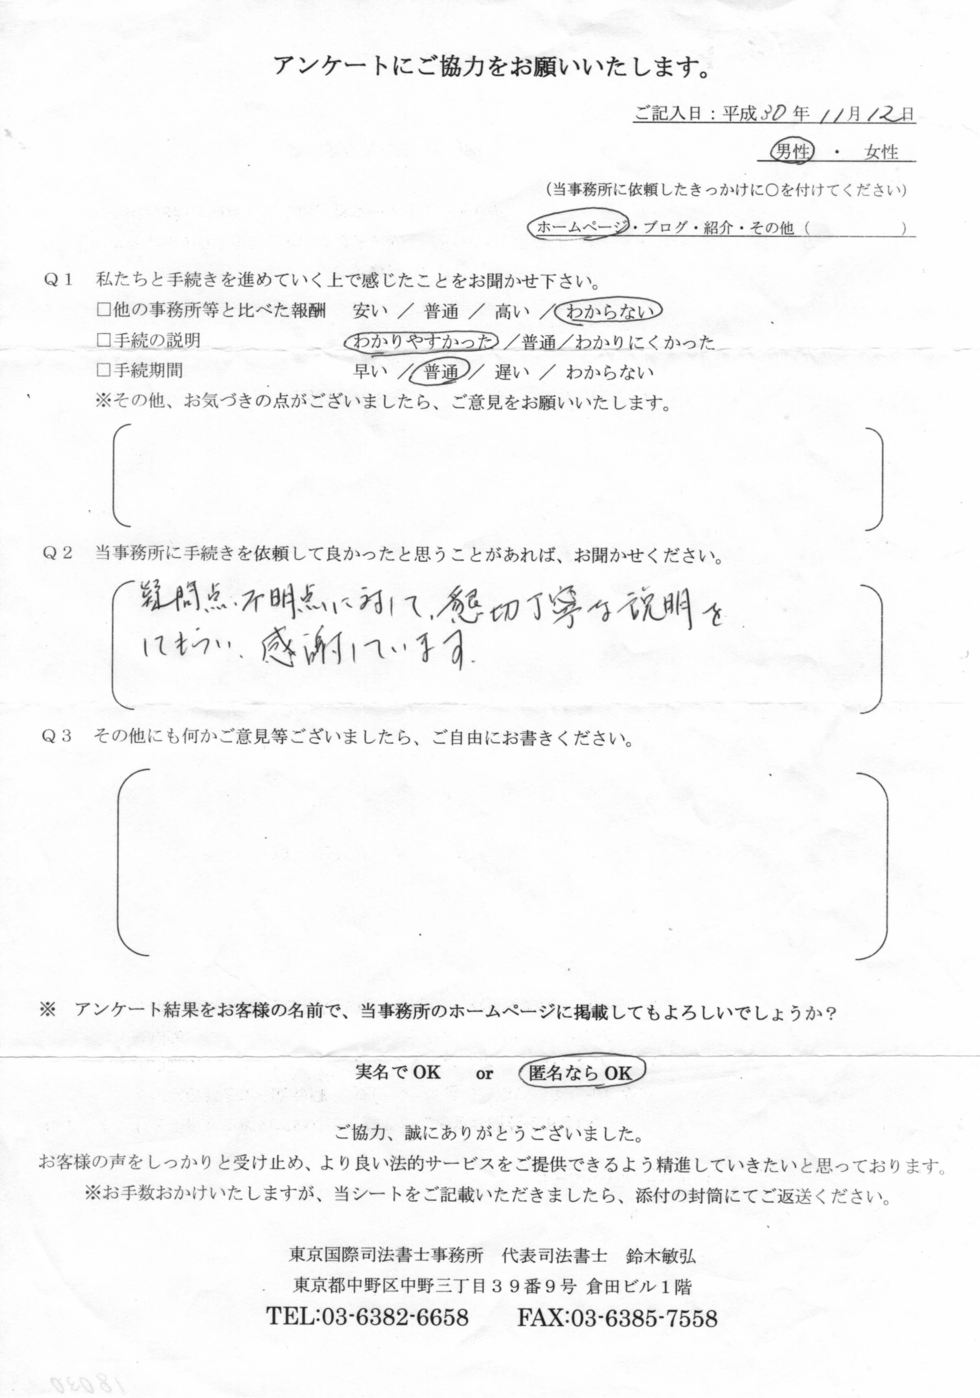 アンケートにご協力をお願いいたします。
ご記入日：平成30年 11月12日
男性 ・ 女性
（当事務所に依頼したきっかけに〇を付けてください）
ホームページ・ブログ・紹介・その他（　　　　　）
Ｑ１　私たちと手続きを進めていく上で感じたことをお聞かせ下さい。
□他の事務所等と比べた報酬　安い ／ 普通 ／ 高い ／ わからない
□手続の説明　わかりやすかった ／普通／わかりにくかった
□手続期間　早い ／ 普通 ／ 遅い ／ わからない
※その他、お気づきの点がございましたら、ご意見をお願いいたします。
Ｑ２　当事務所に手続きを依頼して良かったと思うことがあれば、お聞かせください。
疑問点、不明点に対して、懇切丁寧な説明を
してもらい、感謝しています。
Ｑ３　その他にも何かご意見等ございましたら、ご自由にお書きください。
※　アンケート結果をお客様の名前で、当事務所のホームページに掲載してもよろしいでしょうか？
実名でOK　or　匿名ならOK
ご協力、誠にありがとうございました。
お客様の声をしっかりと受け止め、より良い法的サービスをご提供できるよう精進していきたいと思っております。
※お手数おかけいたしますが、当シートをご記載いただきましたら、添付の封筒にてご返送ください。
東京国際司法書士事務所　代表司法書士　鈴木敏弘
東京都中野区中野三丁目３９番９号 倉田ビル１階
TEL:03-6382-6658　FAX:03-6385-7558